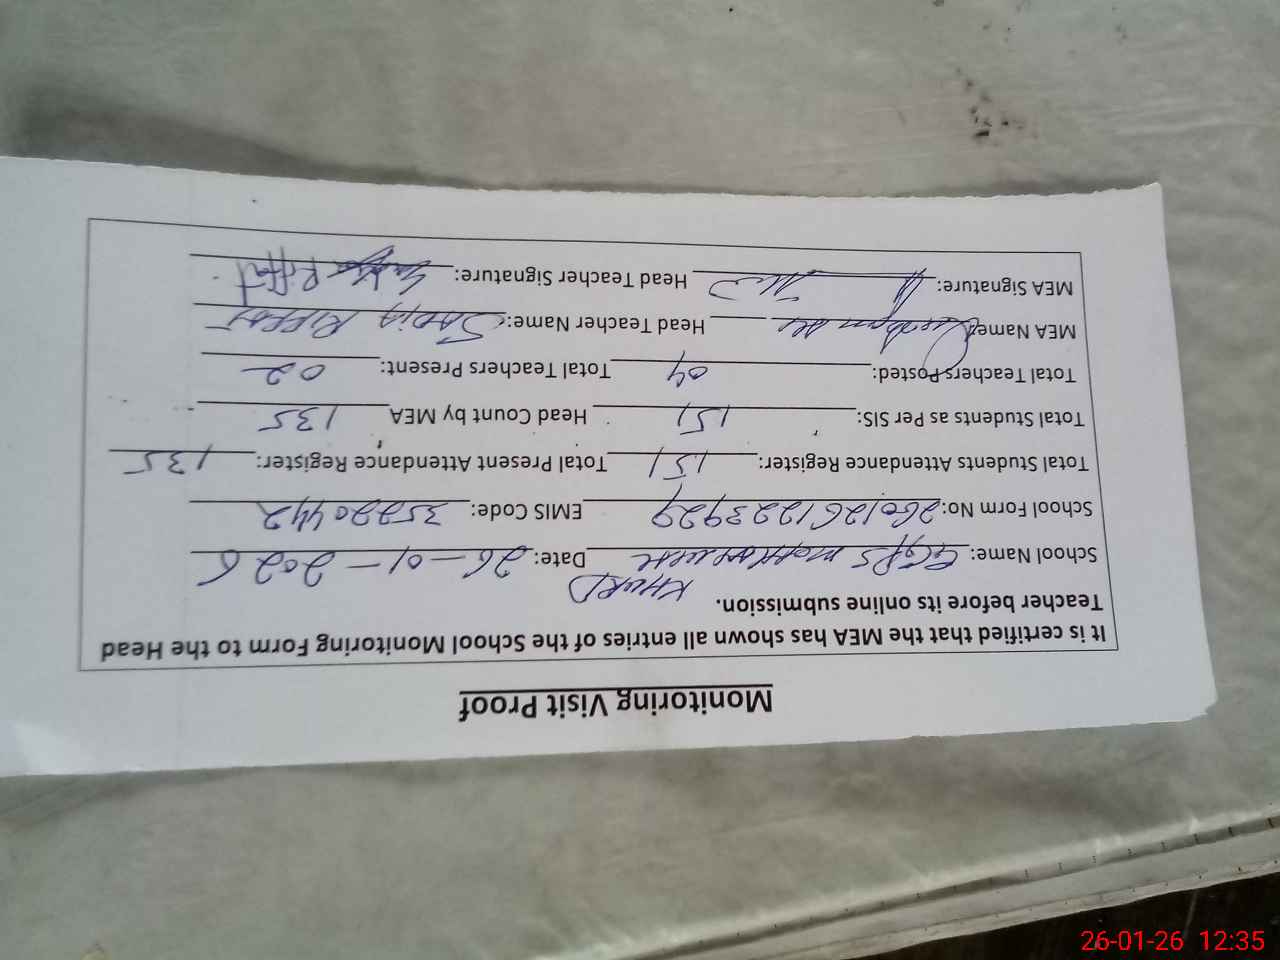 Monitoring Visit Proof
It is certified that the MEA has shown all entries of the School Monitoring Form to the Head
Teacher before its online submission.
KHURD
School Name: GGPS Date: 26-01-2026
School Form No: 2601261223929 EMIS Code: 35220442
Total Students Attendance Register: 151 Total Present Attendance Register: 135
Total Students as Per SIS: 151 Head Count by MEA 135
Total Teachers Posted: 04 Total Teachers Present: 02
MEA Name: Head Teacher Name: SADIA RIFFAT
MEA Signature: Head Teacher Signature: Riffat
26-01-26 12:35